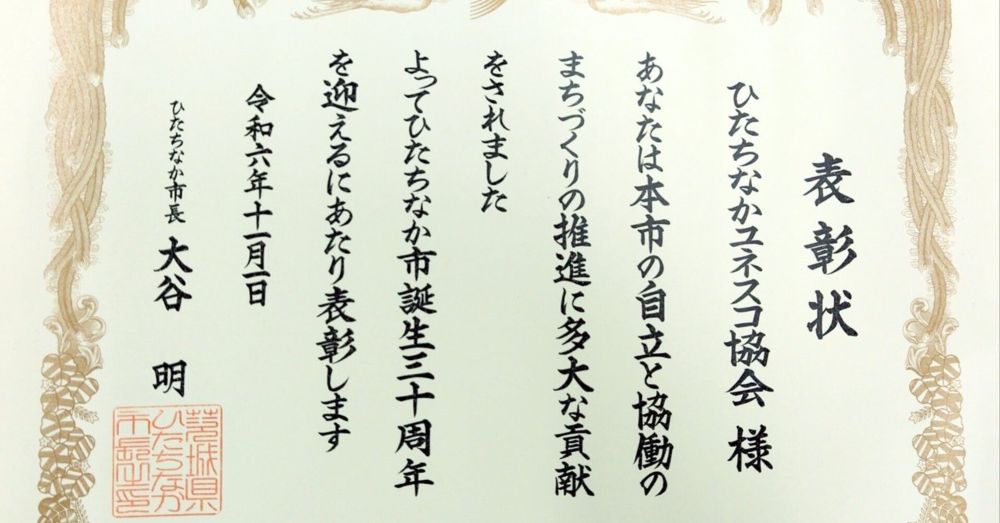 表彰状
ひたちなかユネスコ協会 様
あなたは本市の自立と協働の
まちづくりの推進に多大な貢献
をされました
よってひたちなか市誕生三十周年
を迎えるにあたり表彰します
令和六年十一月一日
ひたちなか市長 大谷 明
茨城県
ひたちなか
市長之印